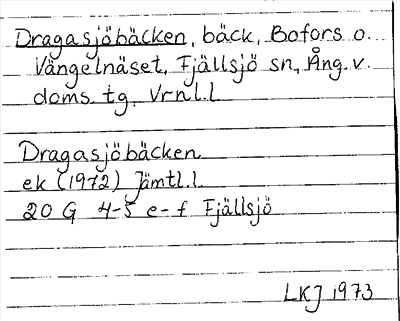 Dragasjöbäcken, bäck, Bofors o.
Vängelnäset, Fjällsjö sn, Ång. v.
doms. tg, Vrnl. l
Dragasjöbäcken
ek (1972) Jämtl. l.
20 G 4-5 e-f Fjällsjö
LKJ 1973